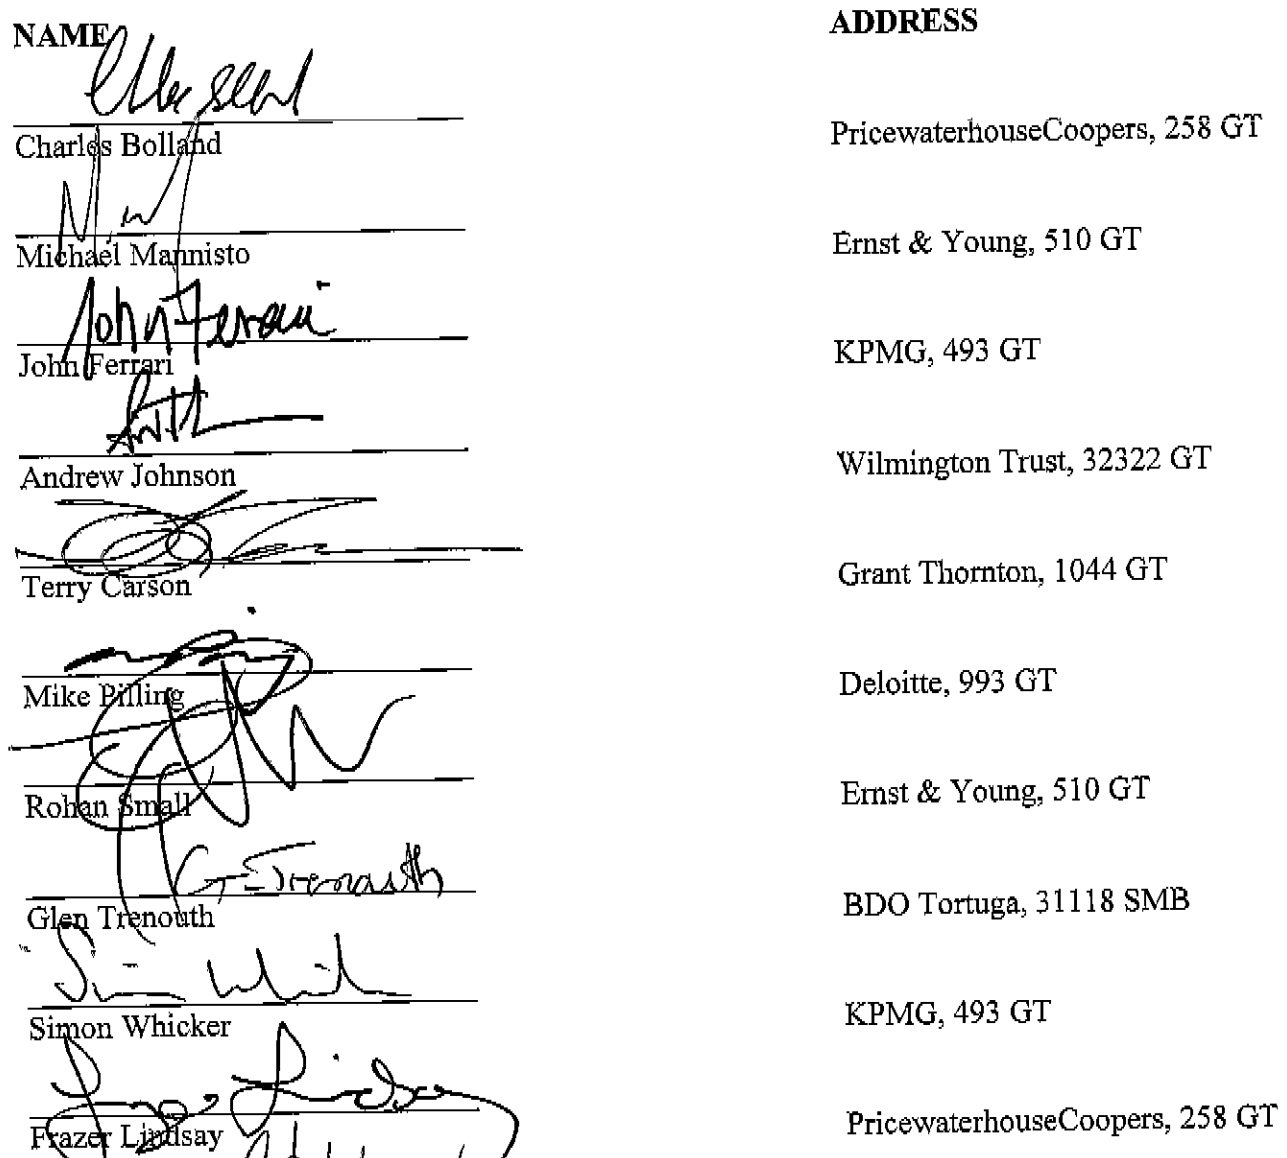 NAME ADDRESS
Charles Bolland PricewaterhouseCoopers, 258 GT
Michael Mannisto Ernst & Young, 510 GT
John Ferrari
John Ferrari KPMG, 493 GT
Andrew Johnson Wilmington Trust, 32322 GT
Terry Carson Grant Thornton, 1044 GT
Mike Pilling Deloitte, 993 GT
Rohan Small Ernst & Young, 510 GT
G Trenouth
Glen Trenouth BDO Tortuga, 31118 SMB
Simon Whicker KPMG, 493 GT
Frazer Lindsay PricewaterhouseCoopers, 258 GT